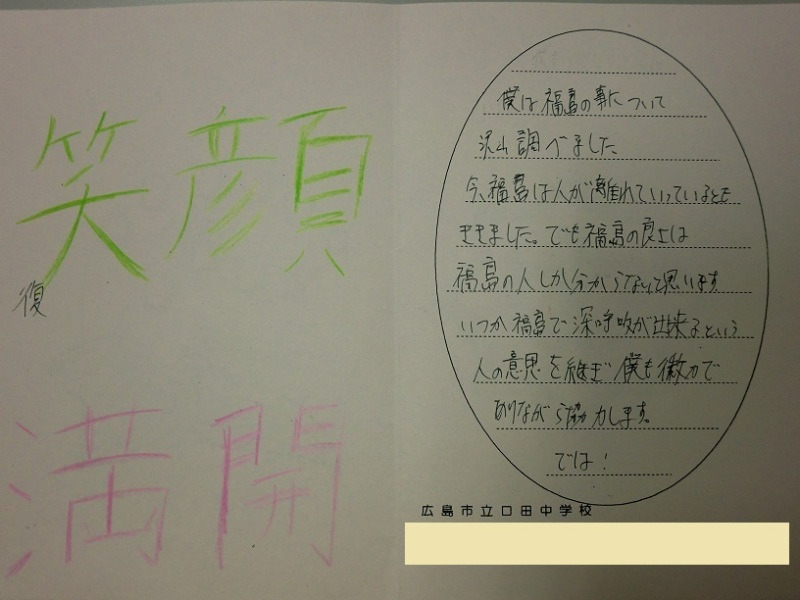 笑顔
復
満開
僕は福島の事について
沢山調べました
今、福島は人が離れていっているとも
ききました。でも福島の良さは
福島の人しか分からないって思います
いつか福島で深呼吸が出来るという
人の意思を継ぎ僕も微力で
ありながら協力します。
では!
広島市立口田中学校